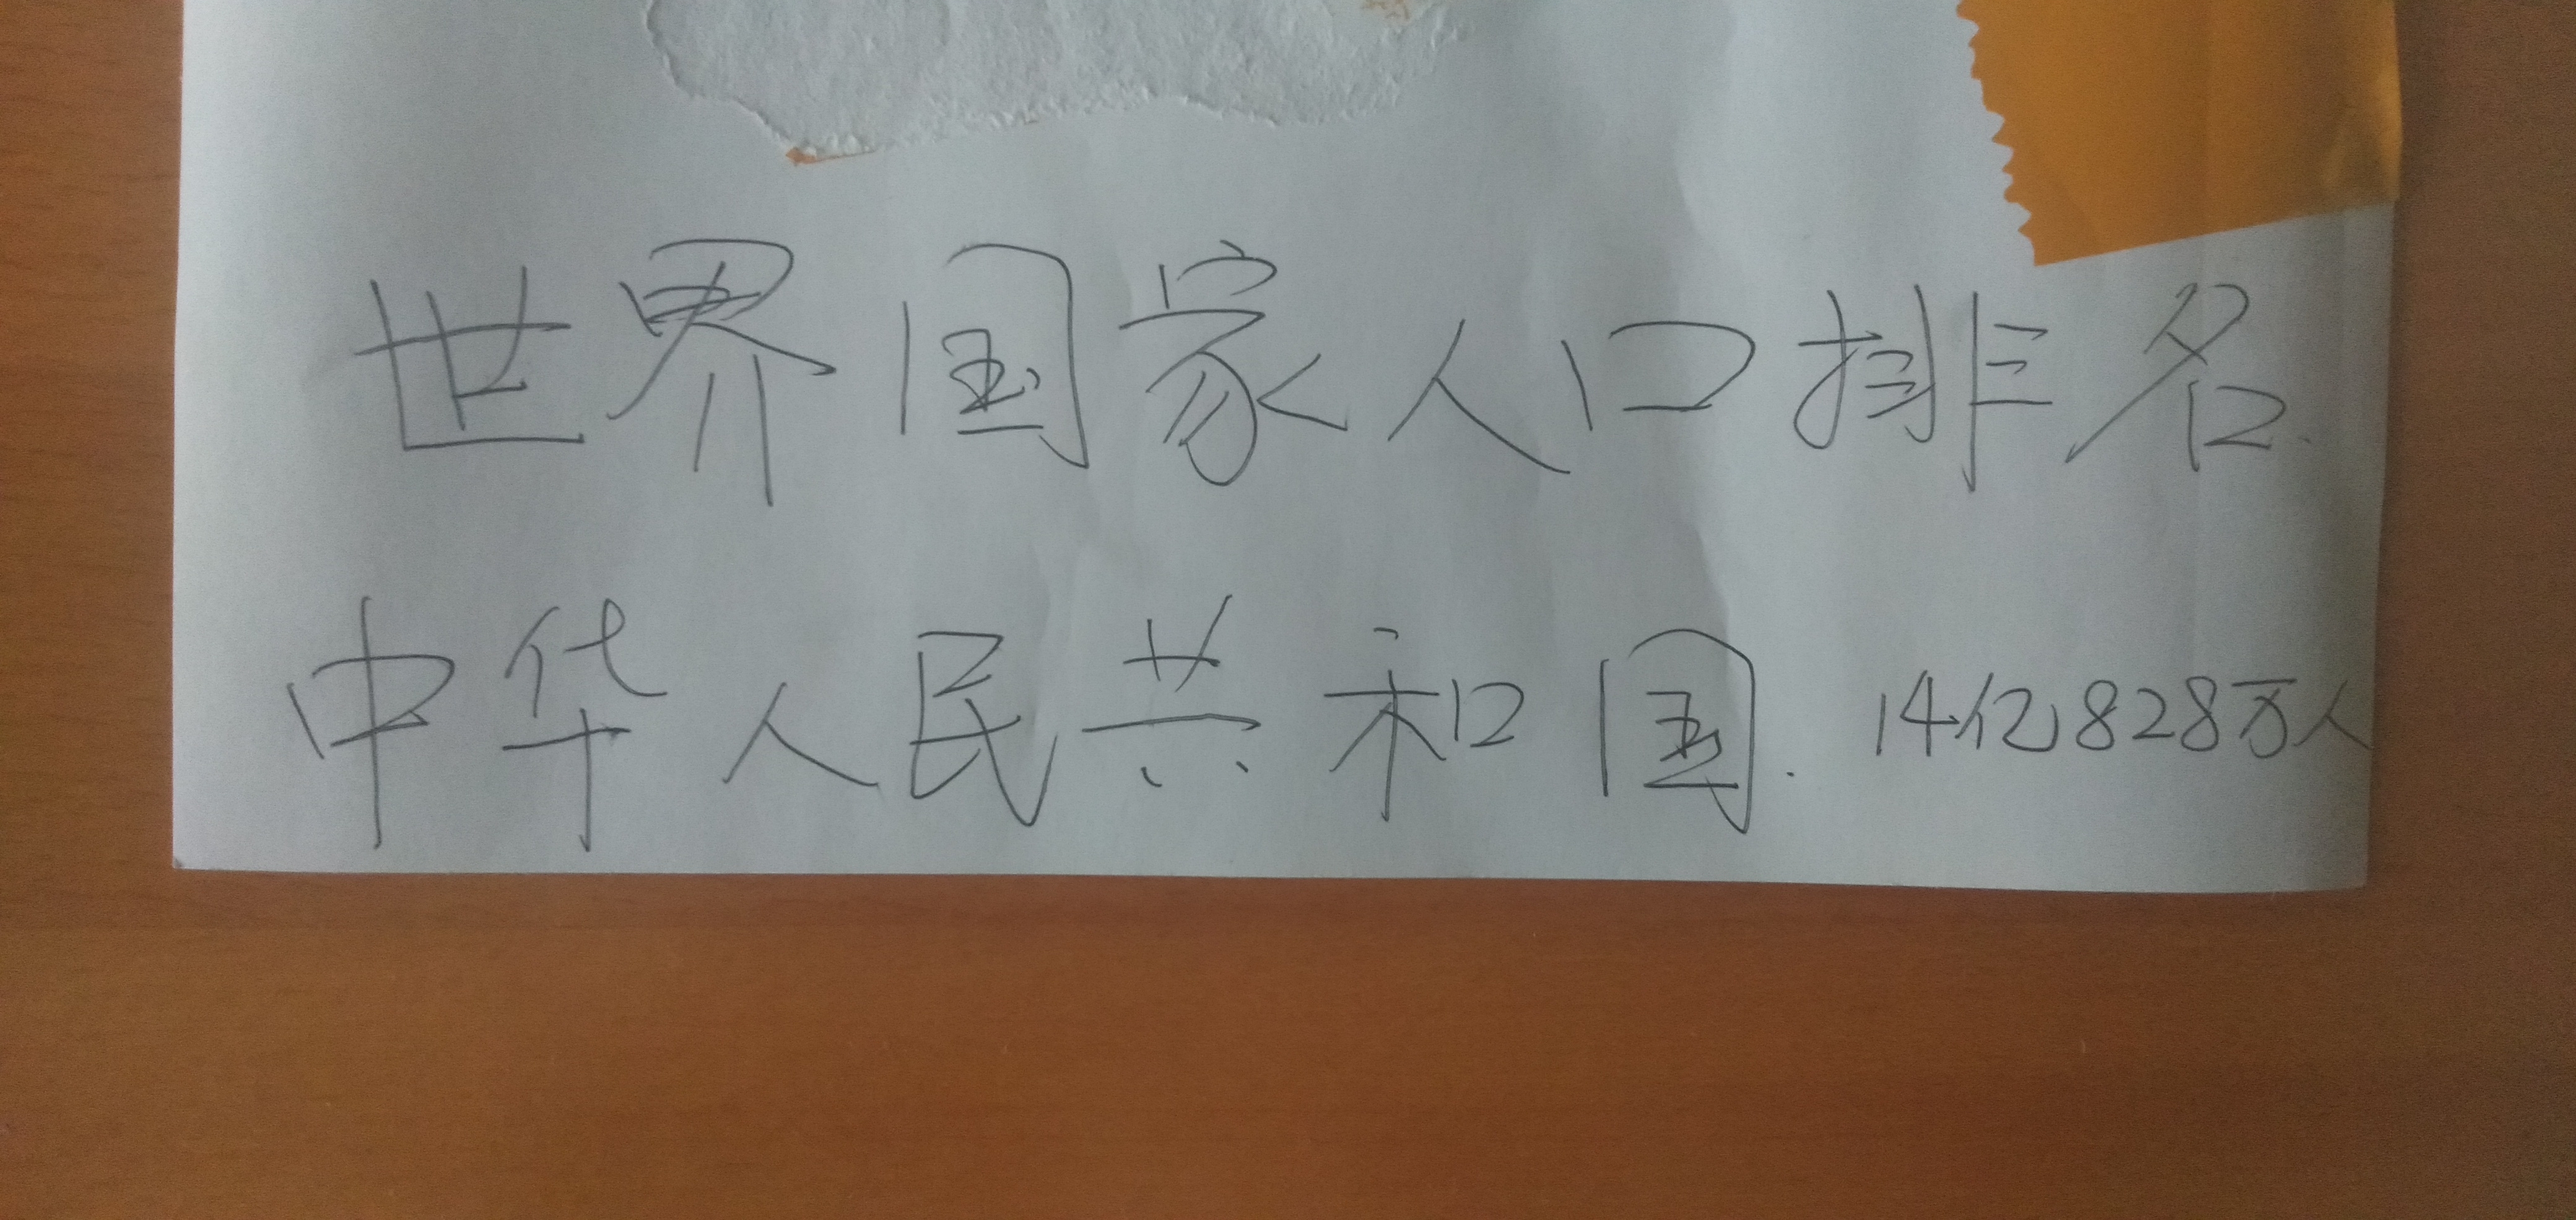 世界国家人口排名.
中华人民共和国. 14亿828万人